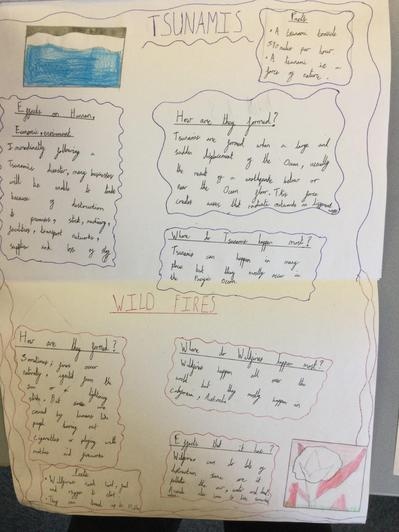 TSUNAMIS
Facts
• A tsunami travels
miles per hour
• A tsunami is a
force of nature.
Effects on Human,
Economic + environment
Immediately following a
Tsunamis disaster, many businesses
will be unable to trade
because of destruction
to premises, stock, machinery,
facilities, transport networks,
supplies and loss of
How are they formed?
Tsunamis are formed when a large and
sudden displacement of the Ocean, usually
the result of a earthquake below or
near the Ocean floor. This force
creates waves that outwards in
Where do Tsunamis happen most?
Tsunamis can happen in many
place but they mostly occur in
the Ocean.
WILD FIRES
How are they formed?
Sometimes, fires occur
naturally, ignited from the
sun or a lightning
strike. But some are
caused by humans like
people leaving out
cigarettes or playing with
matches and fireworks
Where do Wildfires happen most?
Wildfires happen all over the
world but they mostly happen in
Australia
Effects that it has?
Wildfires can do lots of
destruction some are it
pollutes the air, water and land,
Facts
• Wildfires need heat, fuel
and oxygen to start.
• They can travel up to